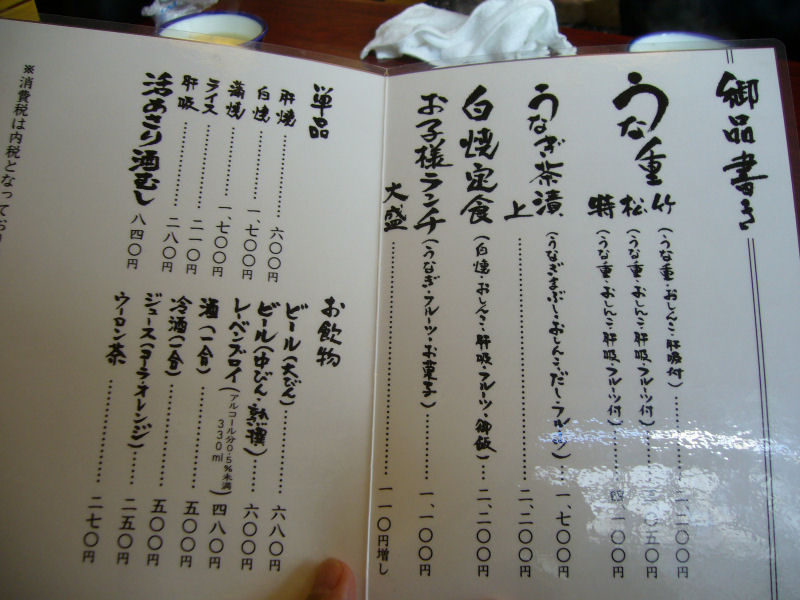 御品書き
うな重
竹(うな重・おしんこ・肝吸付)……二、二〇〇円
松(うな重・おしんこ・肝吸・フルーツ付)……三、〇五〇円
特(うな重・おしんこ・肝吸・フルーツ付)……四、一〇〇円
うなぎ茶漬(うなぎまぶし・おしんこ・だし・フルーツ)……一、七〇〇円
上……二、二〇〇円
白焼定食(白焼・おしんこ・肝吸・フルーツ・御飯)……二、二〇〇円
お子様ランチ(うなぎ・フルーツ・お菓子)……一、一〇〇円
大盛……一一〇円増し
単品
肝焼……六〇〇円
白焼……一、七〇〇円
蒲焼……一、七〇〇円
ライス……二一〇円
肝吸……二八〇円
活あさり酒むし 八四〇円
お飲物
ビール(大びん)……六八〇円
ビール(中びん・熟撰)……六〇〇円
レーベンブロイ(アルコール分0.5%未満 330ml)四八〇円
酒(一合)……五〇〇円
冷酒(一合)……五〇〇円
ジュース(コーラ・オレンジ)……二五〇円
ウーロン茶……二七〇円
※消費税は内税となってお